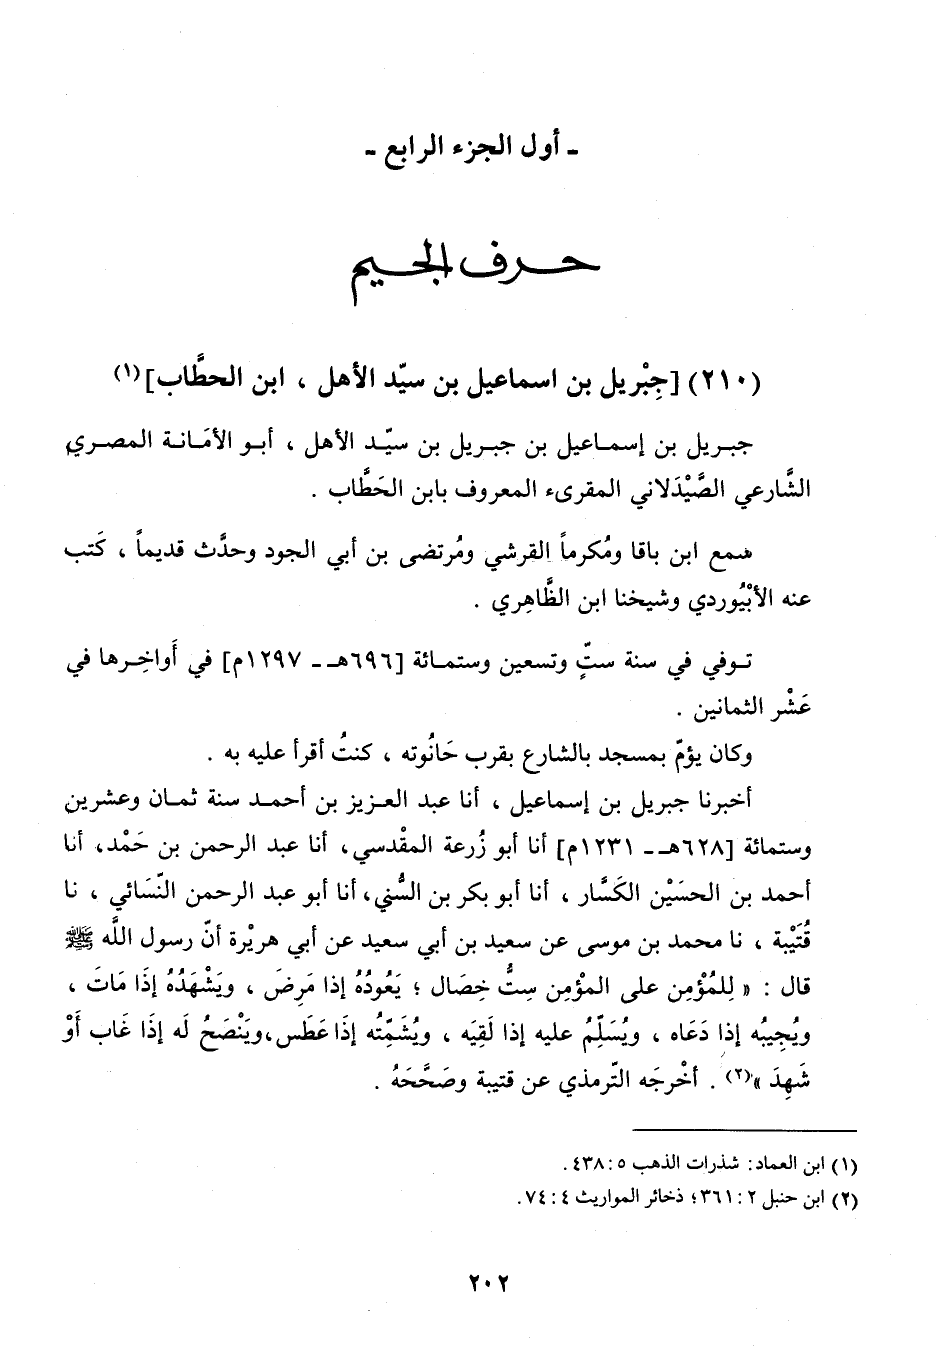 - أول الجزء الرابع -
حرف الجيم
(٢١٠) [جِبْريل بن اسماعيل بن سيّد الأهل ، ابن الحطَّاب] (١)
جبريل بن إسماعيل بن جبريل بن سيّد الأهل ، أبو الأمَانة المصري
الشَّارعي الصَّيْدَلاني المقرىء المعروف بابن الحَطَّاب .
سمع ابن باقا ومُكرماً القرشي ومُرتضى بن أبي الجود وحدَّث قديماً ، كَتب
عنه الأبْيُوردي وشيخنا ابن الظَّاهِري .
توفي في سنة ستٍّ وتسعين وستمائة [٦٩٦هـ - ١٢٩٧م] في أَواخِرها في
عَشْر الثمانين .
وكان يؤمّ بمسجد بالشارع بقرب حَانُوته ، كنتُ أقرأ عليه به .
أخبرنا جبريل بن إسماعيل ، أنا عبد العزيز بن أحمد سنة ثمان وعشرين
وستمائة [٦٢٨هـ - ١٢٣١م] أنا أبو زُرعة المقْدسي، أنا عبد الرحمن بن حَمْد، أنا
أحمد بن الحسَيْن الكَسَّار ، أنا أبو بكر بن السُّني، أنا أبو عبد الرحمن النّسَائي ، نا
قُتَيْبة ، نا محمد بن موسى عن سعيد بن أبي سعيد عن أبي هريْرة أنّ رسول اللَّه ﷺ
قال : « لِلمُؤْمِن على المؤْمِن ستُّ خِصَال ؛ يَعُودُهُ إذا مَرِضَ ، ويَشْهَدُهُ إذَا مَاتَ ،
ويُجِيبُه إذا دَعَاه ، ويُسَلِّمُ عليه إذا لَقِيَه ، ويُشَمِّتُه إذَا عَطَس، ويَنْصَحُ لَه إذَا غَاب أَوْ
شَهِدَ »(٢) . أخْرجَه التّرمذي عن قتيبة وصَحَّحَهُ .
(١) ابن العماد: شذرات الذهب ٥: ٤٣٨.
(٢) ابن حنبل ٢ : ٣٦١؛ ذخائر المواريث ٤ : ٧٤.
٢٠٢